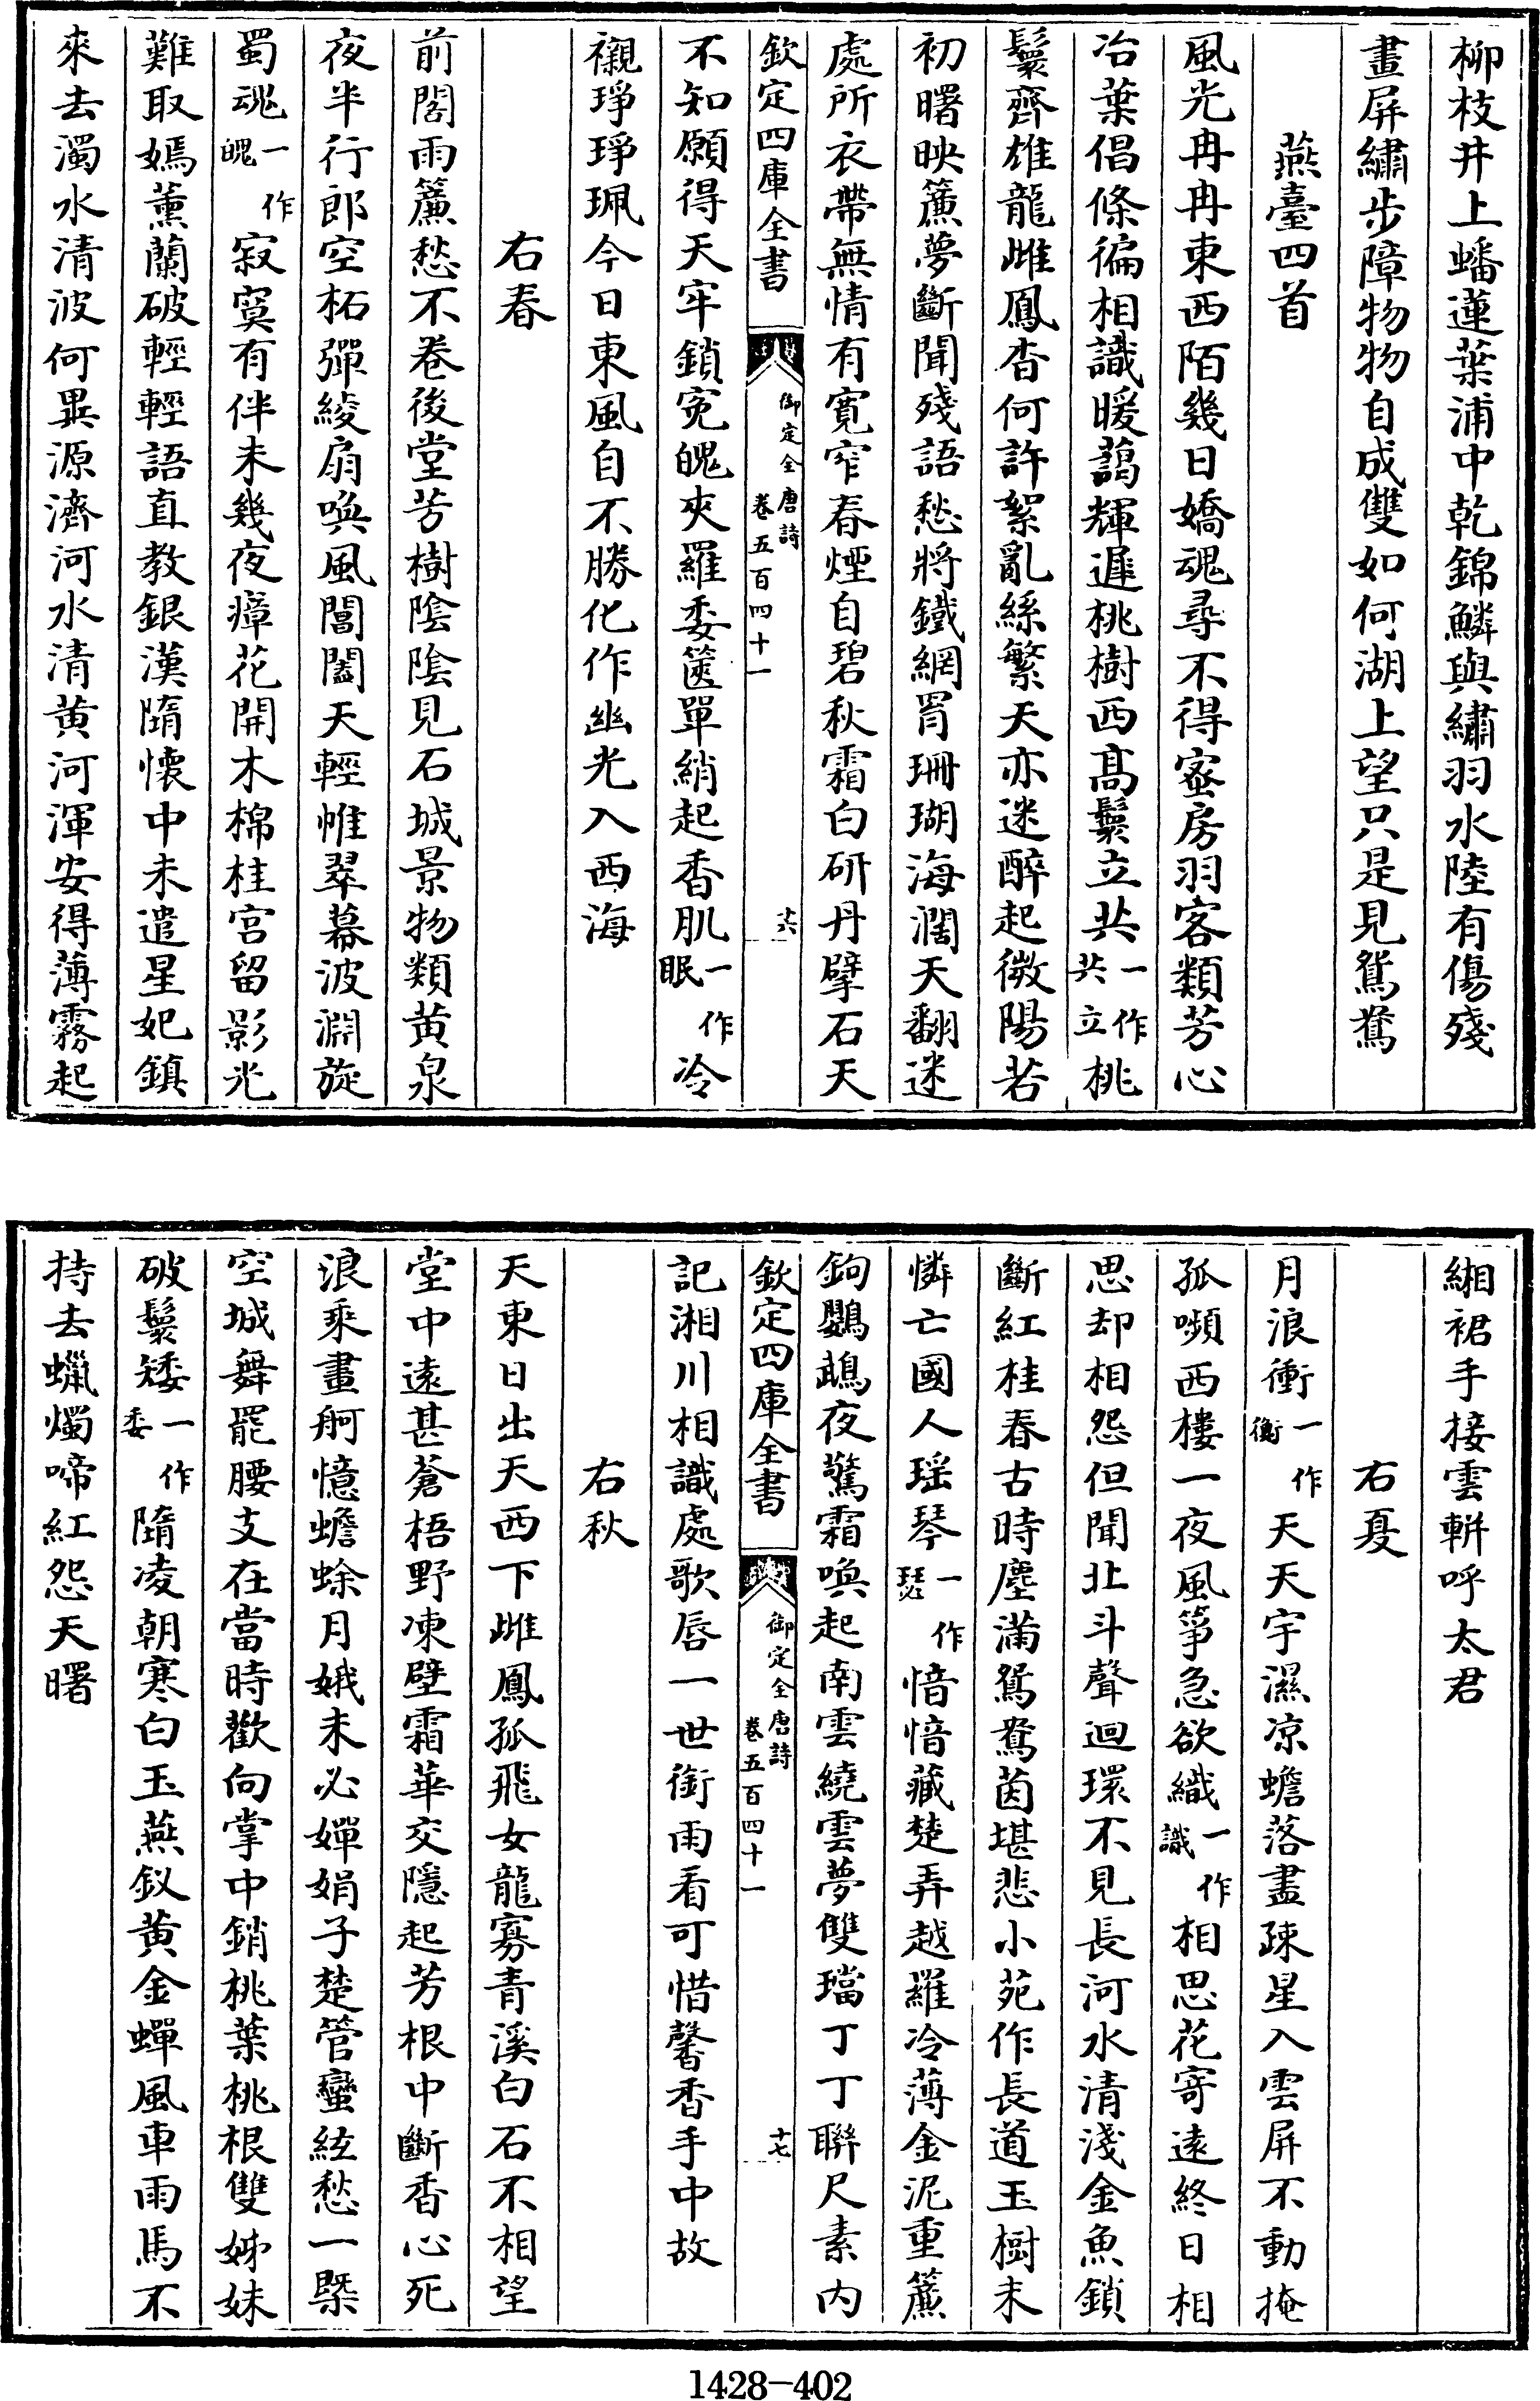 柳枝井上蟠蓮葉浦中乾錦鱗與繡羽水陸有傷殘
畫屏繡步障物物自成雙如何湖上望只是見鴛鴦
燕臺四首
風光冉冉東西陌幾日嬌魂尋不得蜜房羽客類芳心
冶葉倡條徧相識暖藹輝遲桃樹西高鬟立共一作共立桃
鬟齊雄龍雌鳳杳何許絮亂絲繁天亦迷醉起微陽若
初曙映簾夢斷聞殘語愁將鐵網罥珊瑚海濶天翻迷
處所衣帶無情有寛窄春煙自碧秋霜白研丹擘石天
欽定四庫全書
御定全唐詩
卷五百四十一
十六
不知願得天牢鎖寃魄夾羅委篋單綃起香肌一作眠冷
襯琤琤珮今日東風自不勝化作幽光入西海
右春
前閣雨簾愁不卷後堂芳樹陰陰見石城景物類黄泉
夜半行郎空柘彈綾扇喚風閶闔天輕帷翠幕波淵旋
蜀魂一作魄寂寞有伴未幾夜瘴花開木棉桂宮留影光
難取嫣薰蘭破輕輕語直教銀漢隋懷中未遣星妃鎮
來去濁水清波何異源濟河水清黄河渾安得薄霧起
緗裙手接雲軿呼太君
右夏
月浪衝一作衡天天宇濕凉蟾落盡疎星入雲屏不動掩
孤嚬西樓一夜風箏急欲織一作識相思花寄遠終日相
思却相怨但聞北斗聲迴環不見長河水清淺金魚鎖
斷紅桂春古時塵滿鴛鴦茵堪悲小苑作長道玉樹未
憐亡國人瑶琴一作瑟愔愔藏楚弄越羅冷薄金泥重簾
鉤鸚鵡夜驚霜喚起南雲繞雲夢雙璫丁丁聯尺素内
欽定四庫全書
御定全唐詩
卷五百四十一
十七
記湘川相識處歌唇一世銜雨看可惜馨香手中故
右秋
天東日出天西下雌鳳孤飛女龍寡青溪白石不相望
堂中遠甚蒼梧野凍壁霜華交隱起芳根中斷香心死
浪乘畫舸憶蟾蜍月娥未必嬋娟子楚管蠻絃愁一槩
空城舞罷腰支在當時歡向掌中銷桃葉桃根雙姊妹
破鬟矮一作委隋凌朝寒白玉燕釵黄金蟬風車雨馬不
持去蠟燭啼紅怨天曙
1428-402